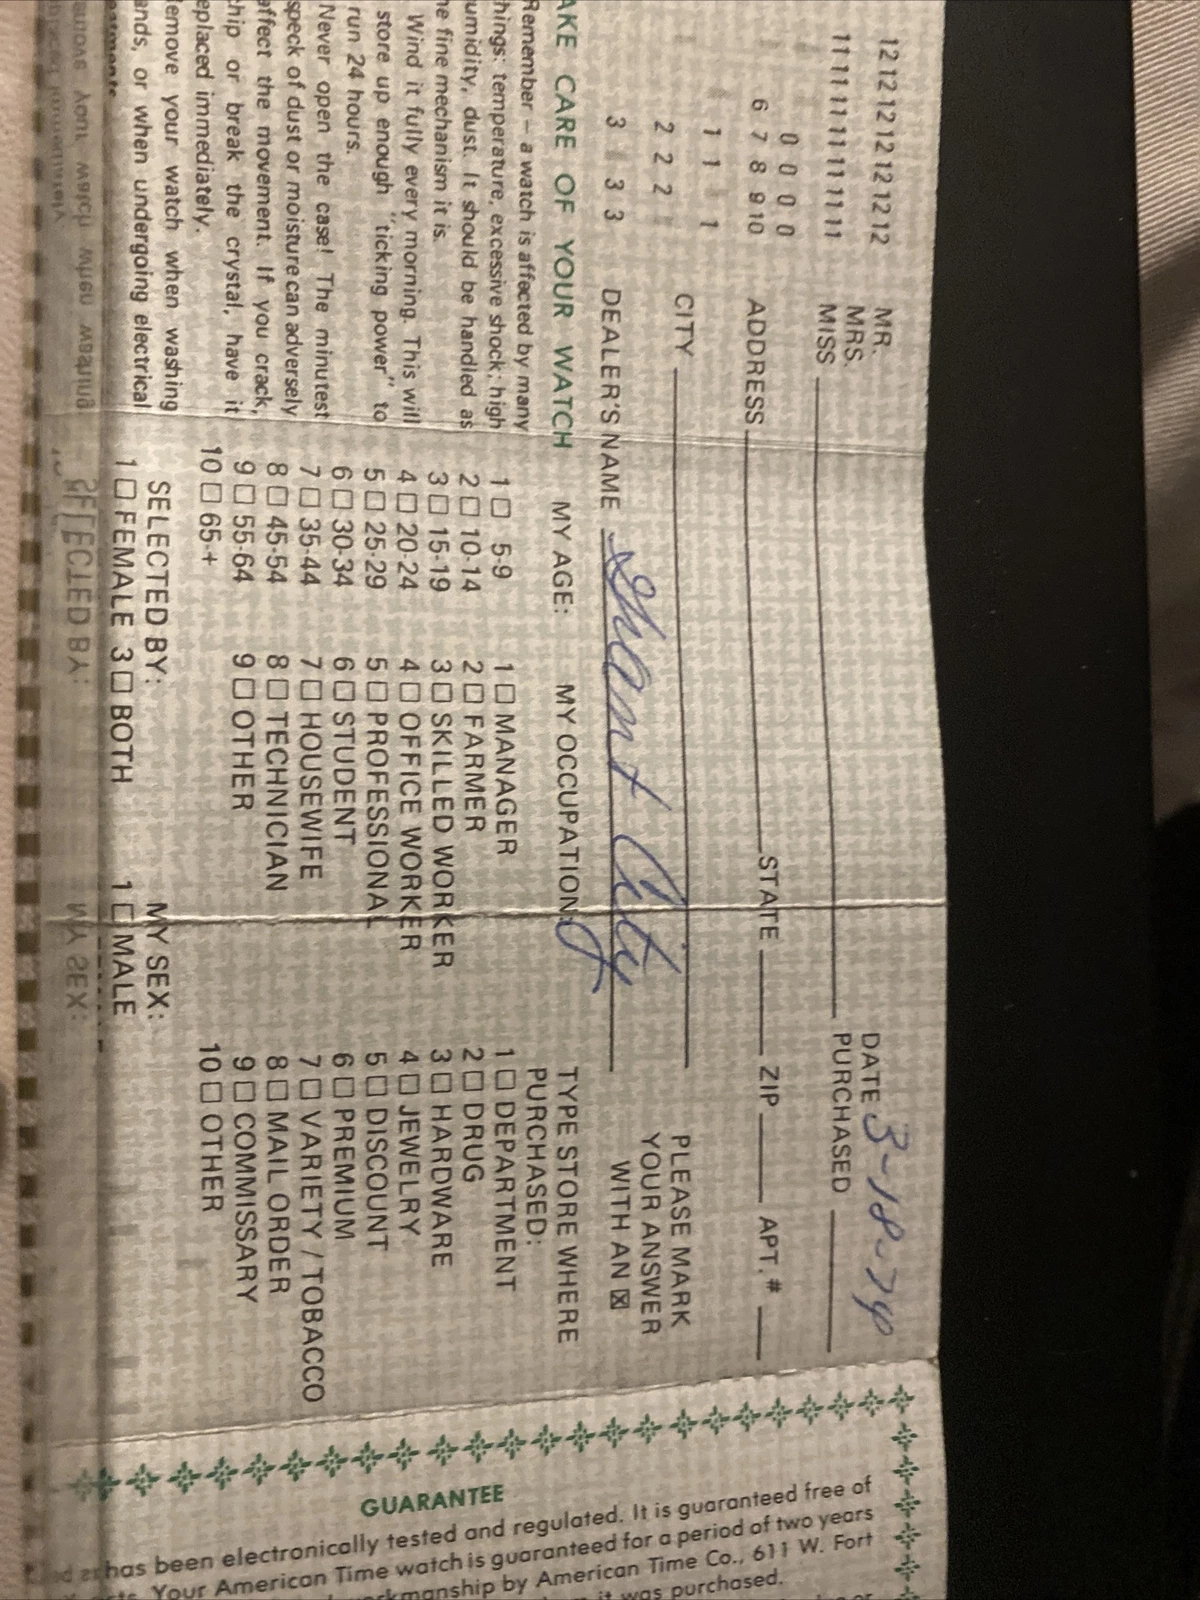 12 12 12 12 12 12 12
11 11 11 11 11 11 11
0 0 0 0
6 7 8 9 10
1 1 1 1
2 2 2
3 3 3
MR.
MRS.
MISS
DATE 3-18-74
PURCHASED
ADDRESS STATE ZIP APT. #
CITY
DEALER'S NAME Grant City
PLEASE MARK
YOUR ANSWER
WITH AN ☒
AKE CARE OF YOUR WATCH
Remember — a watch is affected by many
hings: temperature, excessive shock; high
umidity, dust. It should be handled as
he fine mechanism it is.
Wind it fully every morning. This will
store up enough "ticking power" to
run 24 hours.
Never open the case! The minutest
speck of dust or moisture can adversely
affect the movement. If you crack,
chip or break the crystal, have it
eplaced immediately.
emove your watch when washing
ands, or when undergoing electrical
MY AGE:
1 ☐ 5-9
2 ☐ 10-14
3 ☐ 15-19
4 ☐ 20-24
5 ☐ 25-29
6 ☐ 30-34
7 ☐ 35-44
8 ☐ 45-54
9 ☐ 55-64
10 ☐ 65-+
MY OCCUPATION:
1 ☐ MANAGER
2 ☐ FARMER
3 ☐ SKILLED WORKER
4 ☐ OFFICE WORKER
5 ☐ PROFESSIONAL
6 ☐ STUDENT
7 ☐ HOUSEWIFE
8 ☐ TECHNICIAN
9 ☐ OTHER
TYPE STORE WHERE
PURCHASED:
1 ☐ DEPARTMENT
2 ☐ DRUG
3 ☐ HARDWARE
4 ☐ JEWELRY
5 ☐ DISCOUNT
6 ☐ PREMIUM
7 ☐ VARIETY / TOBACCO
8 ☐ MAIL ORDER
9 ☐ COMMISSARY
10 ☐ OTHER
SELECTED BY:
1 ☐ FEMALE 3 ☐ BOTH
MY SEX:
1 ☐ MALE
GUARANTEE
has been electronically tested and regulated. It is guaranteed free of
Your American Time watch is guaranteed for a period of two years
rkmanship by American Time Co., 611 W. Fort
it was purchased.